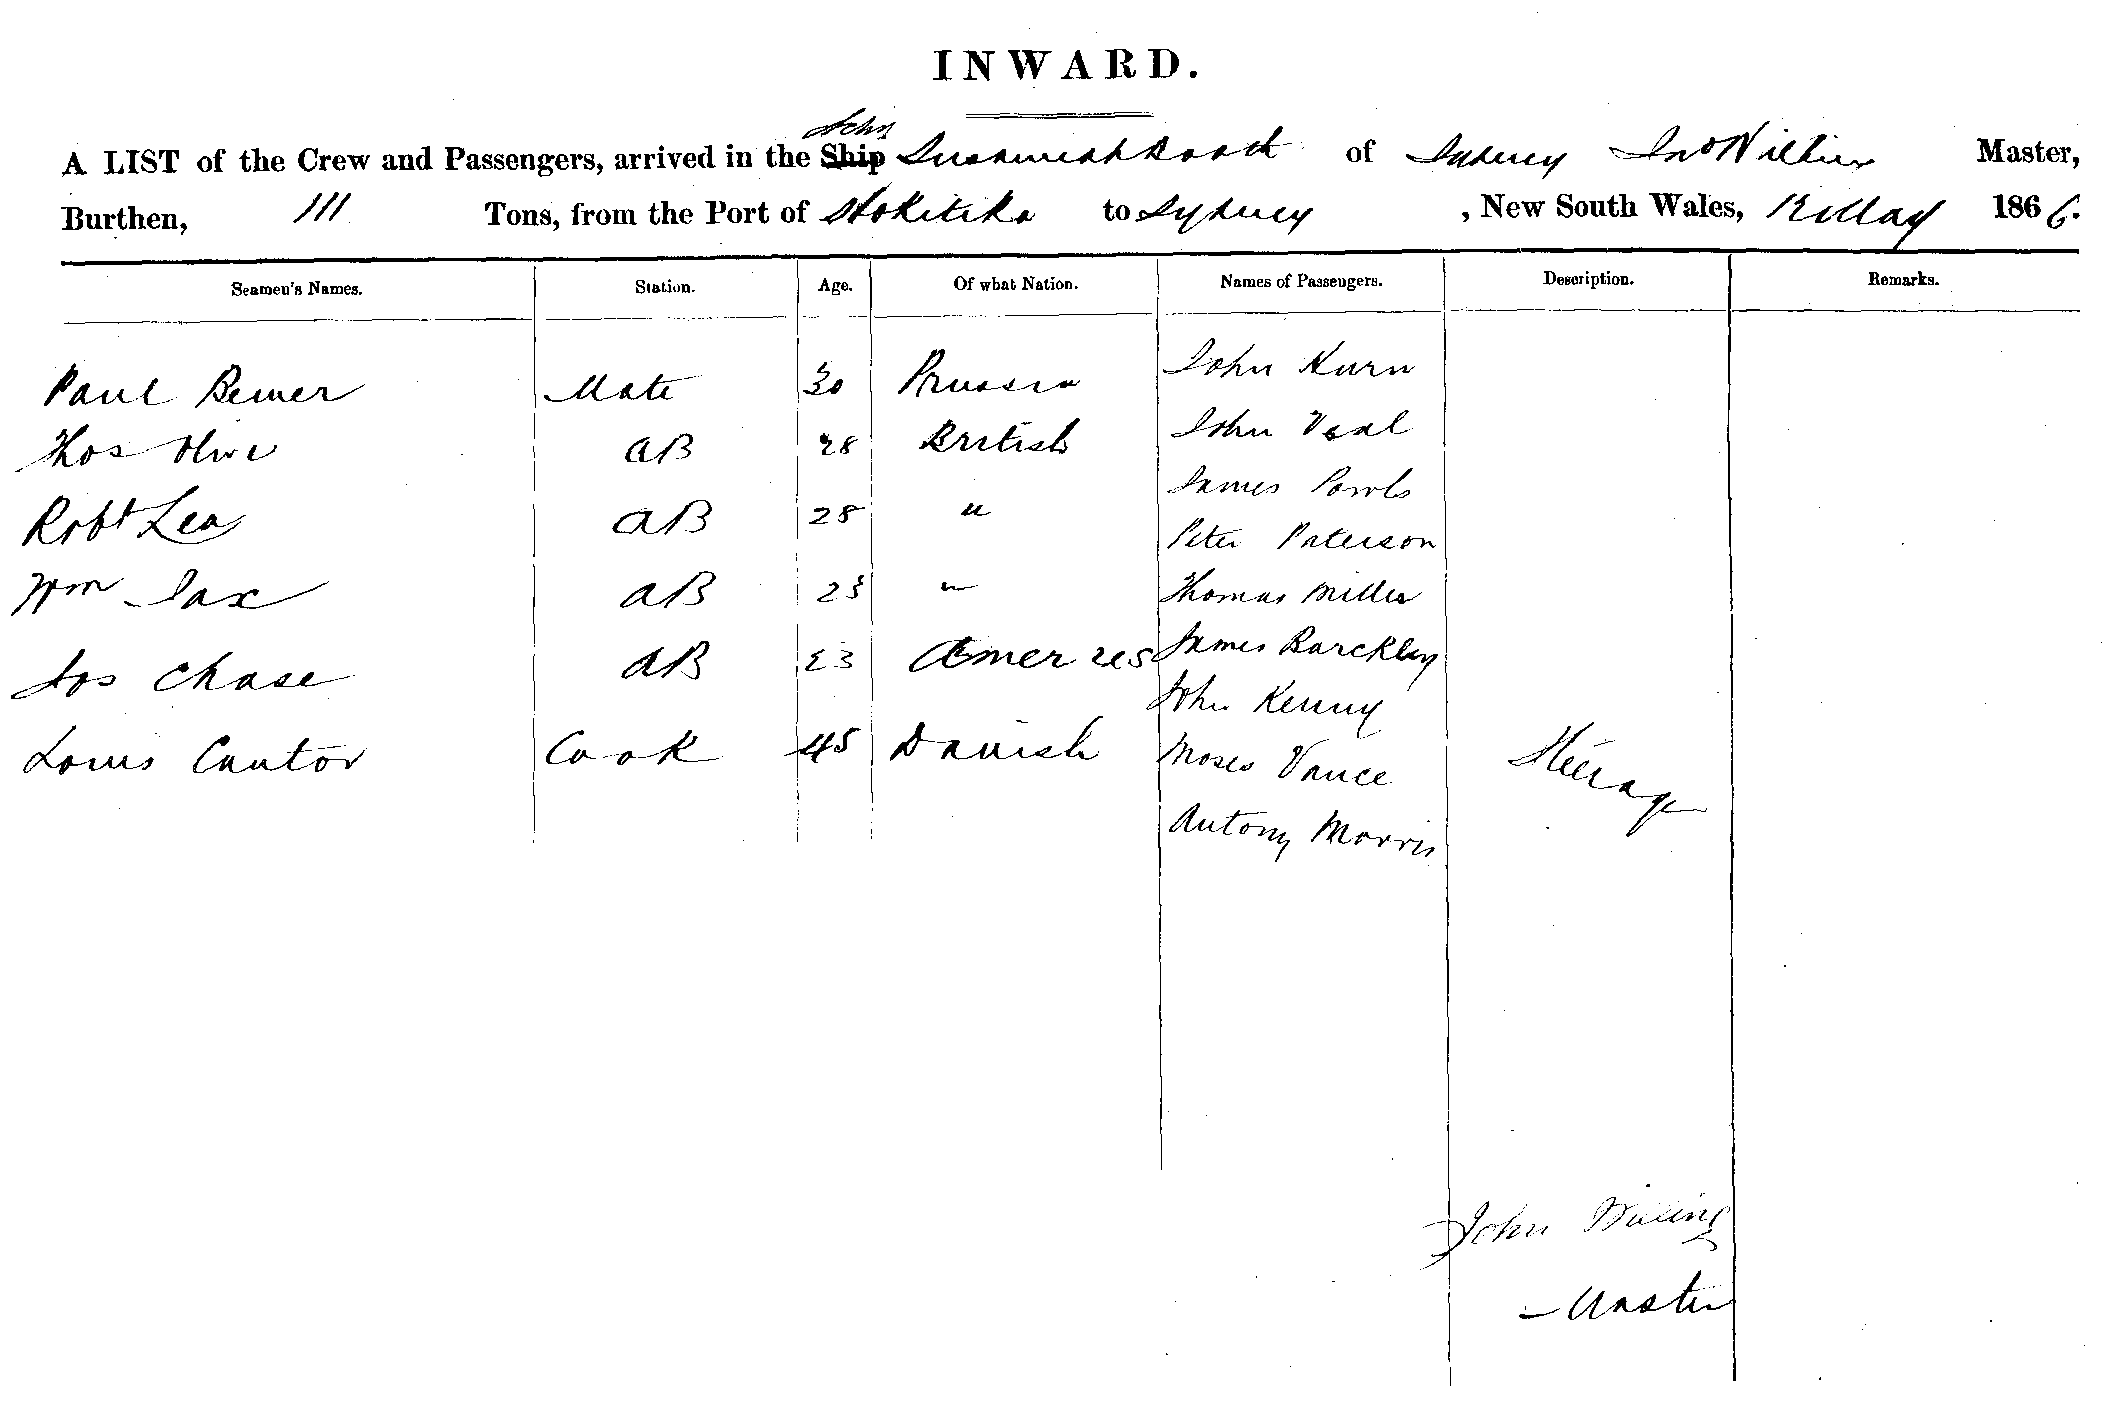 INWARD.
Schr
A LIST of the Crew and Passengers, arrived in the Ship Susannah of Sydney Jno Master,
Burthen, 111 Tons, from the Port of Hokitika to Sydney , New South Wales, May 1866.
Seamen's Names. Station. Age. Of what Nation. Names of Passengers. Description. Remarks.
Paul Bemer Mate 30 Prussia John Kurn
Thos Olive AB 28 British John Veal
James
Robt Lea AB 28 " Peter Paterson
Wm Jax AB 23 " Thomas Miller
Jos Chase AB 23 James Barckley
John Kenny
Louis Cantor Cook 45 Danish Moses Vance Steerage
Antony Morris
John
Master